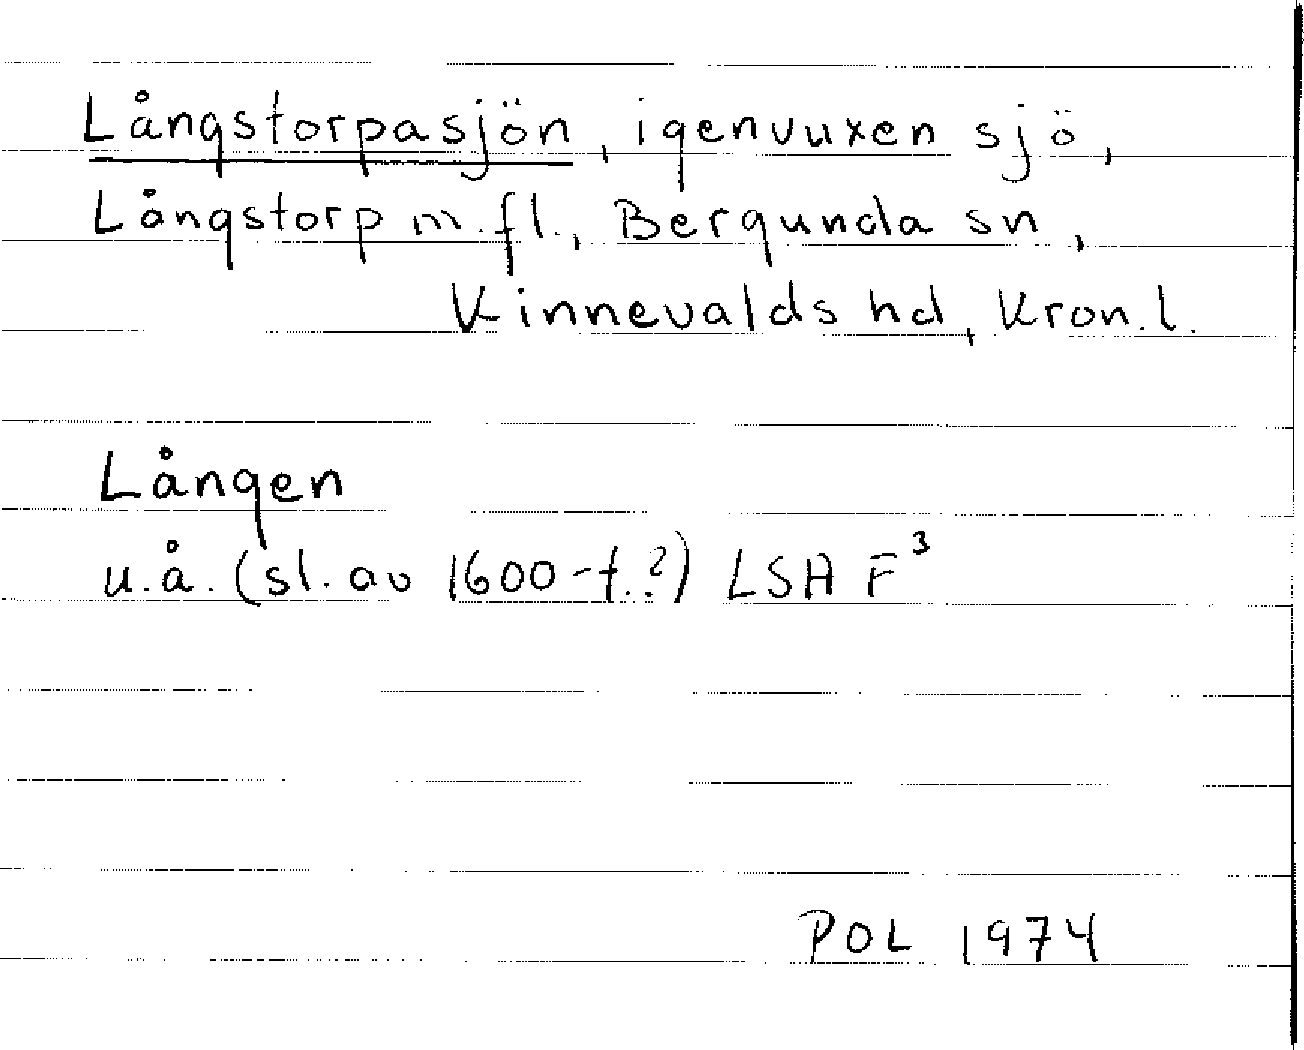 Långstorpasjön, igenvuxen sjö,
Långstorp m.fl., Bergunda sn,
Kinnevalds hd, Kron.l.
Lången
u.å. (sl. av 1600-t.?) LSA F³
POL 1974